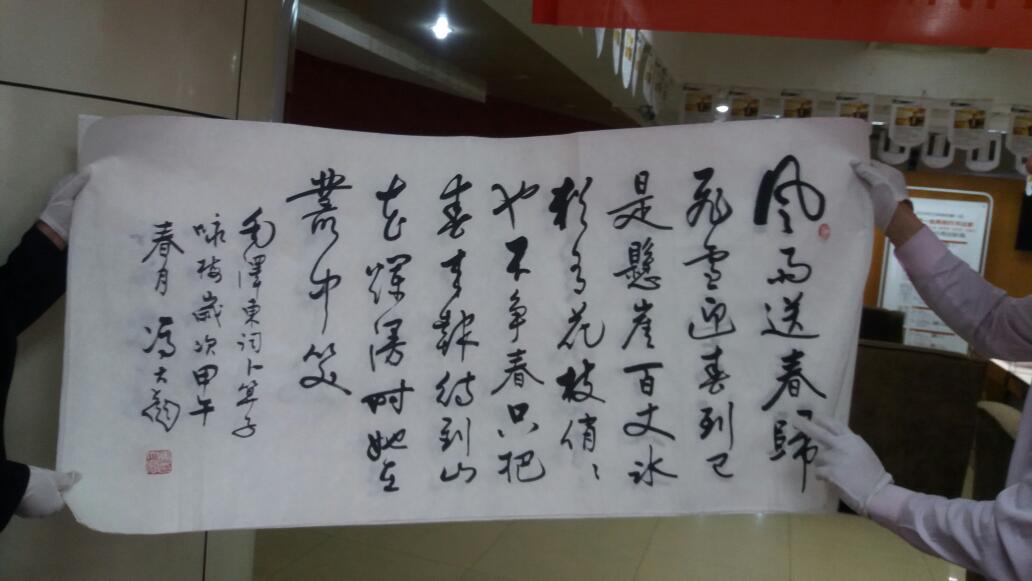 风雨送春歸
飛雪迎春到已
是懸崖百丈冰
猶有花枝俏〻
也不争春只把
春来報待到山
花爛漫时她在
叢中笑
毛澤東词卜算子
咏梅歲次甲午
春月